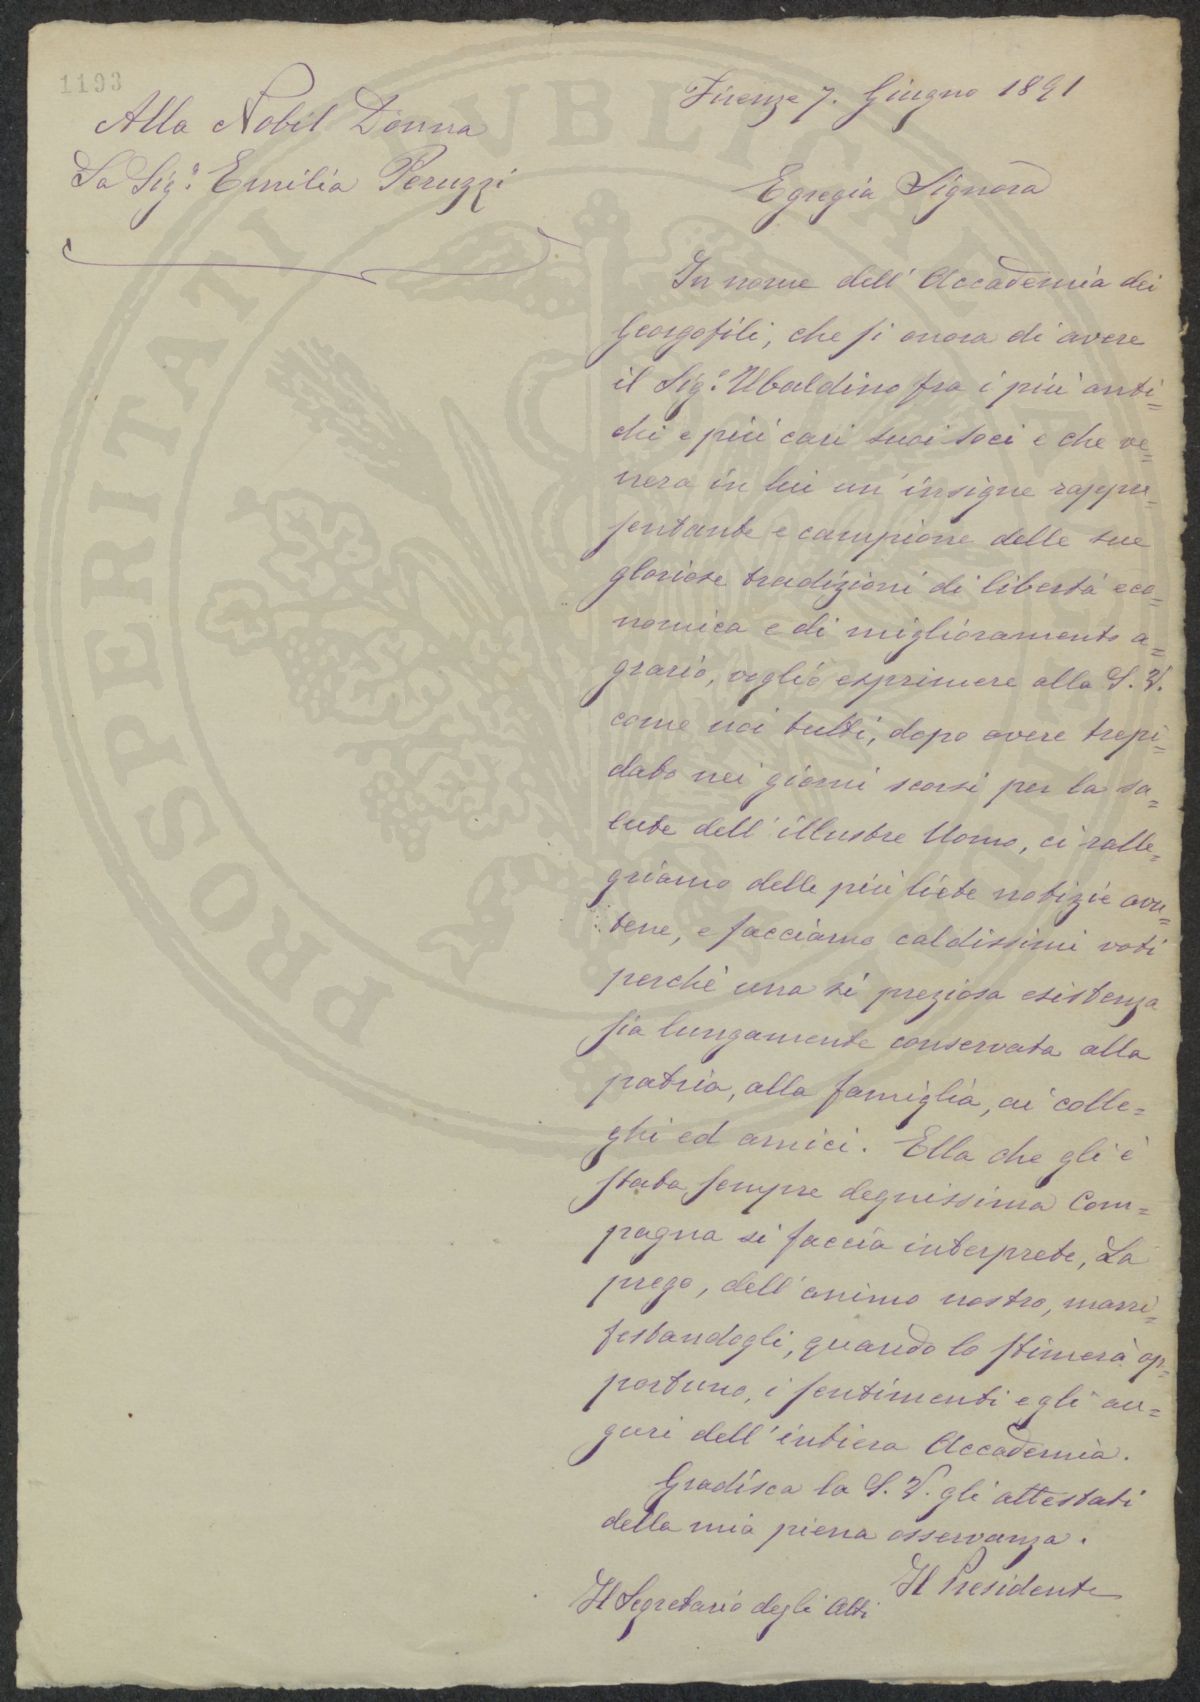 1193
Firenze 7. Giugno 1891
Alla Nobil Donna
La Sig.ª Emilia Peruzzi
Egregia Signora
In nome dell' Accademia dei
Georgofili, che si onora di avere
il Sig.r Ubaldino fra i più anti=
chi e più cari suoi soci e che ve=
nera in lui un' insigne rappre=
sentante e campione delle sue
gloriose tradizioni di libertà eco=
nomica e di miglioramento a=
grario, voglio esprimere alla S. V.
come noi tutti, dopo avere trepi=
dato nei giorni scorsi per la sa=
lute dell' illustre Uomo, ci ralle=
griamo delle più liete notizie avu=
tene, e facciamo caldissimi voti
perchè una sì preziosa esistenza
sia lungamente conservata alla
patria, alla famiglia, ai colle=
ghi ed amici. Ella che gli è
stata sempre degnissima Com=
pagna si faccia interprete, La
prego, dell' animo nostro, mani=
festandogli, quando lo stimerà op=
portuno, i sentimenti e gli au=
guri dell' intiera Accademia.
Gradisca la S. V. gli attestati
della mia piena osservanza.
Il Presidente
Il Segretario degli Atti
PROSPERITATI PUBLICAE